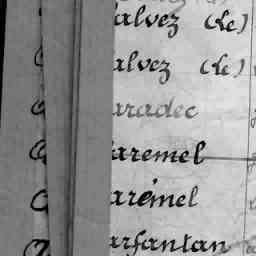 alvez (Le)
alvez (Le)
aradec
aremel
aremel
arfantan